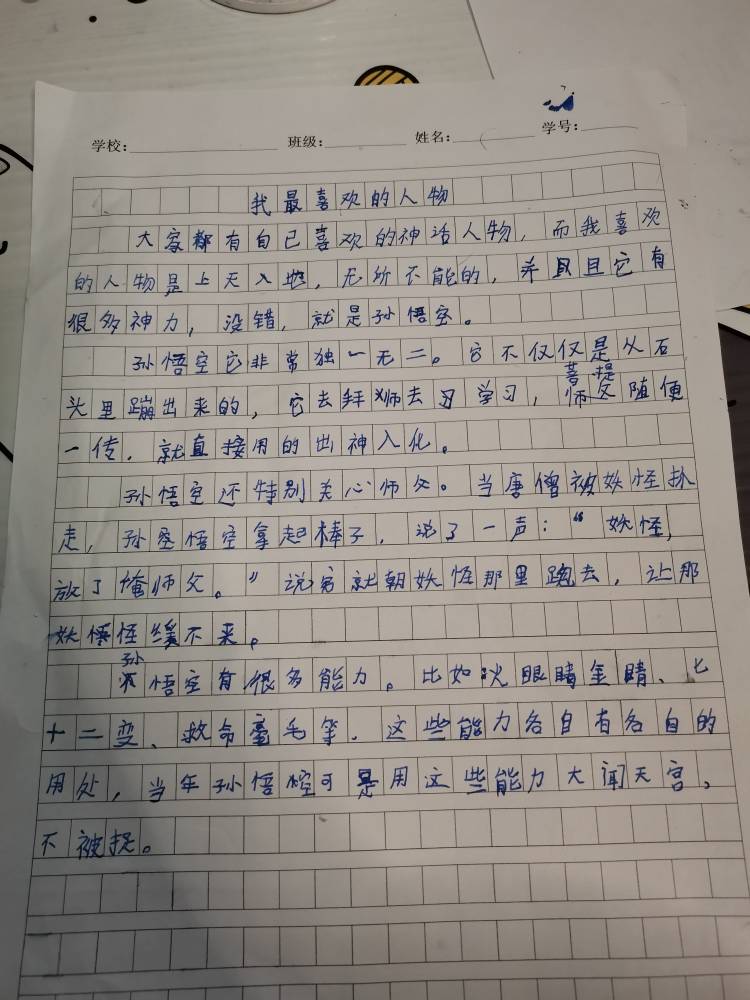 学校： 班级： 姓名： 学号：
我最喜欢的人物
大家都有自已喜欢的神话人物，而我喜欢
的人物是上天入地，无所不能的，并且它有
很多神力，没错，就是孙悟空。
孙悟空它非常独一无二。它不仅仅是从石
头里蹦出来的，它去拜师去习学习，菩提师父随便
一传，就直接用的出神入化。
孙悟空还特别关心师父。当唐僧被妖怪扒
走，孙悟空拿起棒子，说了一声：“妖怪，
放了俺师父。”说完就朝妖怪那里跑去，让那
妖怪缓不来。
孙悟空有很多能力。比如火眼睛金睛、七
十二变、救命毫毛等，这些能力各自有各自的
用处，当年孙悟空可是用这些能力大闹天宫，
不被捉。